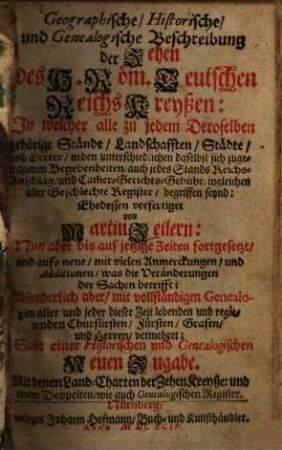 Geographische/Historische/
und Genealogische Beschreibung
der Zehen
des H. Röm. Teutschen
Reichs Kreyßen:
In welcher alle zu jedem Deroselben
gehörige Stände/ Landschafften/ Städte/
und Oerter/ neben unterschiedlichen daselbst sich zuge-
tragenen Begebenheiten/ auch jedes Stands Reichs-
Anschlag/ und Cammer-Gerichts-Gebühr/ ingleichen
aller Geschlechte Register/ begriffen seynd:
Ehedessen verfertiget
von
Martin Zeilern:
Nun aber bis auf jetzige Zeiten fortgesetzt/
und aufs neue/ mit vielen Anmerckungen/ und
Additionen/ was die Veränderungen
der Sachen betrifft:
Absonderlich aber/ mit vollständigen Genealo-
gien aller und jeder dieser Zeit lebenden und regie-
renden Churfürsten/ Fürsten/ Grafen/
und Herren/ vermehret:
Samt einer Historischen und Genealogischen
Neuen Zugabe.
Mit denen Land-Charten der Zehen Kreyße: und
einem Doppelten/ wie auch Genealogischen Register.
Nürnberg/
verlegts Johann Hofmann/ Buch- und Kunsthändler.